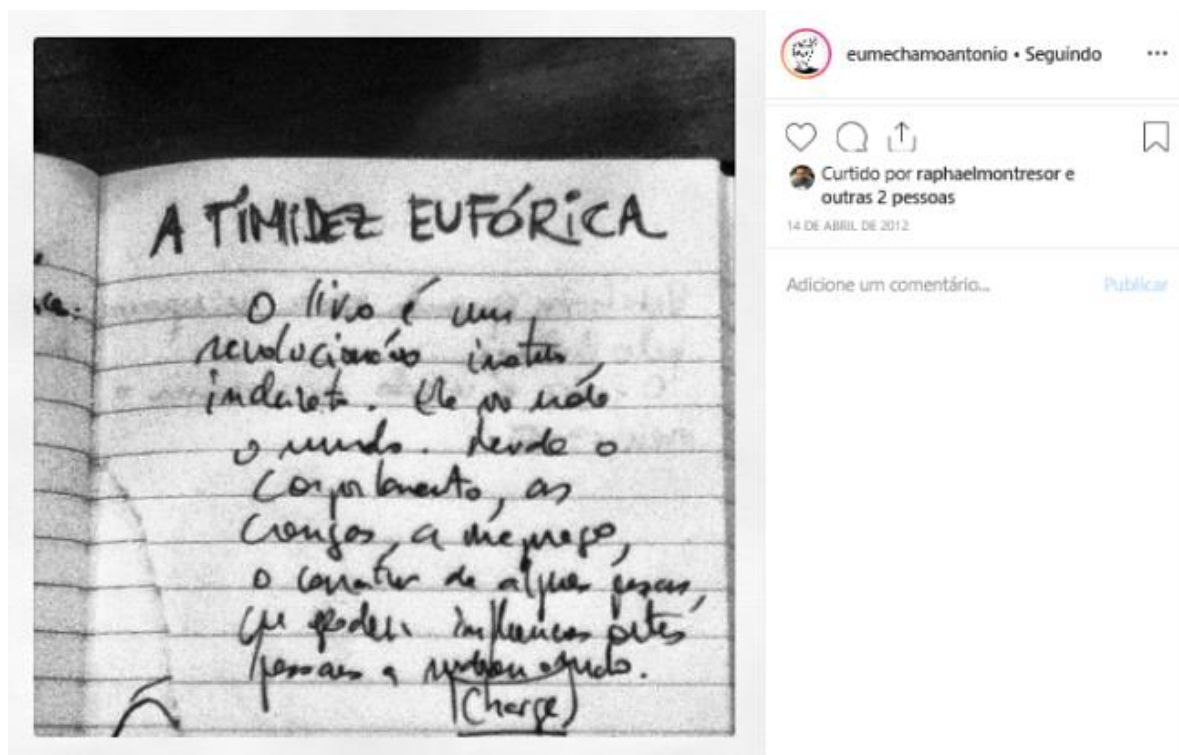 A TIMIDEZ EUFÓRICA
O livro é um
revolucionário inato,
indireto. Ele
o mundo. Desde o
comportamento, as
crenças, a
o caráter de pessoas,
que podem influenciar
pessoas a o mundo.
(Charge)
eumechamoantonio • Seguindo
Curtido por raphaelmontresor e
outras 2 pessoas
14 DE ABRIL DE 2012
Adicione um comentário...
Publicar